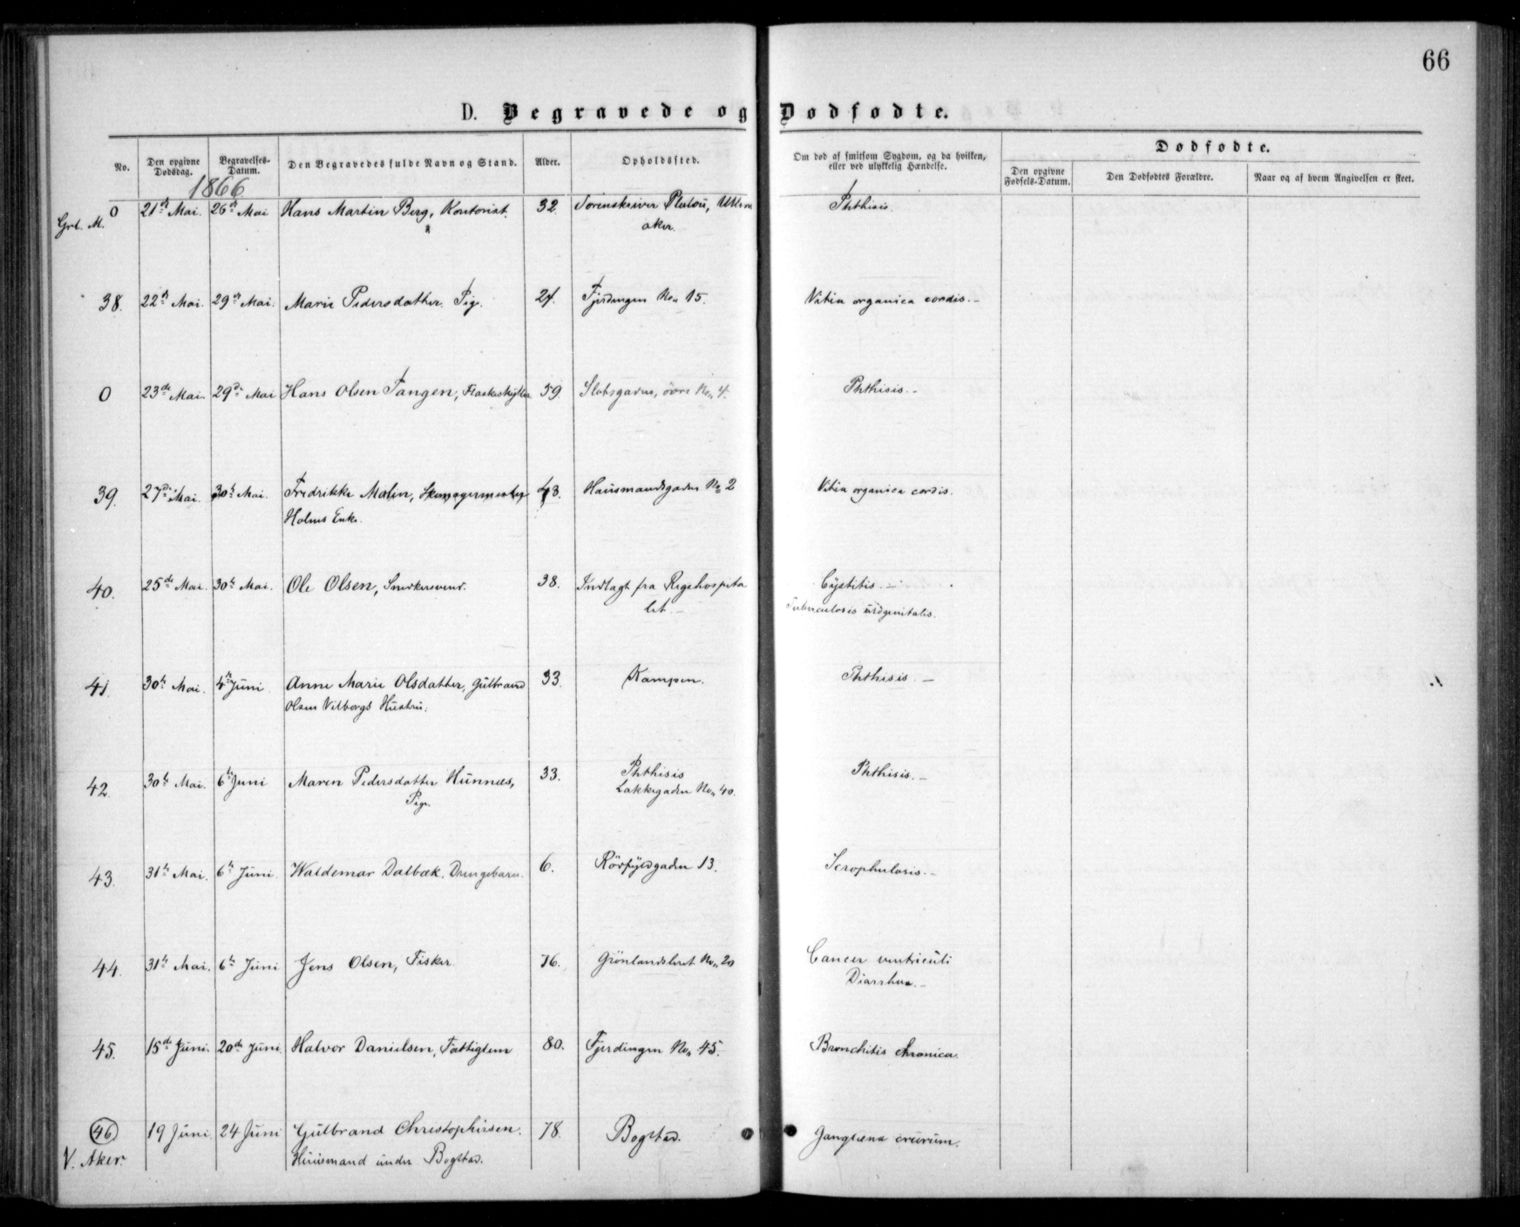 66
D. Begravede og Dødfødte.
No. Den opgivne Dødsdag. Begravelses-Datum. Den Begravedes fulde Navn og Stand. Alder. Opholdssted. Om død af smitsom Sygdom, og da hvilken, eller ved ulykkelig Hændelse. Dødfødte.
Den opgivne Fødsels-Datum. Den Dødfødtes Forældre. Naar og af hvem Angivelsen er skeet.
1866
0 21de Mai. 26de Mai Hans Martin Berg, Kontorist. 32. Sorenskriver Platou, Ullern Phthisis.
Grl. M. aker.
38. 22de Mai. 29de Mai. Marie Pedersdatter. Pige. 24. Fjerdingen No. 15. Vitia organica cordis.-
0 23de Mai. 29de Mai Hans Olsen Tangen, 59 Slotsgaden, övre No. 4. Phthisis.-
39. 27de Mai. 30te Mai. Fredrikke Malin, 43. Hausmandsgaden No. 2 Vitia organica cordis.
Holms Enke.
40. 25de Mai. 30te Mai. Ole Olsen, Snedkersvend. 38. Indlagt fra Rigshospita Cystitis.-
let.- Tuberculosis urogenitalis.
41. 30te Mai. 4de Juni Anne Marie Olsdatter, Gulbrand 33. Kampen. Phthisis.-
Olsen Vilbergs Hustru.
42. 30te Mai. 6te Juni Maren Pedersdatter Hunnæs, 33. Phthisis Phthisis.-
Pige. Lakkegaden No. 40.
43. 31te Mai. 6te Juni. Waldemar Dalbæk. Drengebarn. 6. Rörfyldgaden 13. Scrophulosis.-
44. 31te Mai. 6te Juni Jens Olsen, Fisker 76. Grönlandsleret No. 20 Cancer ventriculi
Diarrhoe.-
45. 15de Juni. 20de Juni. Halvor Danielsen, Fattiglem 80. Fjerdingen No. 45. Bronchitis chronica.
46 19 Juni. 24 Juni Gulbrand Christophersen. 78. Bogstad. Gangræna crurum.
V. Aker. Huusmand under Bogstad.